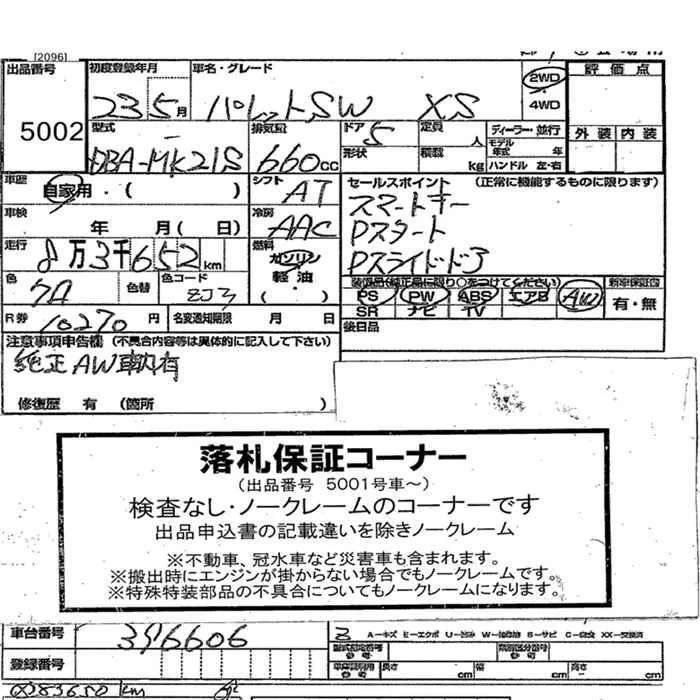 [2096]
出品番号 初度登録年月 車名・グレード 2WD 評価点
5002 23 5月 パレットSW XS 4WD
型式 排気量 ドア 定員 ディーラー・並行 外装 内装
DBA-MK21S 660cc 5 人 モデル年式 年
形状 積載 kg ハンドル 左・右
車歴 自家用・( ) シフト AT セールスポイント (正常に機能するものに限ります)
車検 年 月(日) 冷房 AAC スマートキー
Pスタート
走行 8万3千652km 燃料 ガソリン Pスライドドア
軽油
( ・ )
色 色替 色コード ZJ3 装備品(純正品に限り○をつけてください) 新車保証書
PS PW ABS エアB AW 有・無
SR ナビ TV
R券 10270円 名変通知期限 月 日 後日品
注意事項申告欄 (不具合内容等は具体的に記入して下さい)
純正AW
修復歴 有 (箇所 )
落札保証コーナー
(出品番号 5001号車~)
検査なし・ノークレームのコーナーです
出品申込書の記載違いを除きノークレーム
※不動車、冠水車など災害車も含まれます。
※搬出時にエンジンが掛からない場合でもノークレームです。
※特殊特装部品の不具合についてもノークレームになります。
車台番号 396606 A-キズ E-エクボ U-凹み W-補修跡 S-サビ C-腐食 XX-交換済
型式指定番号 類別区分番号
登録番号 長さ cm 幅 cm 高さ cm
83650km